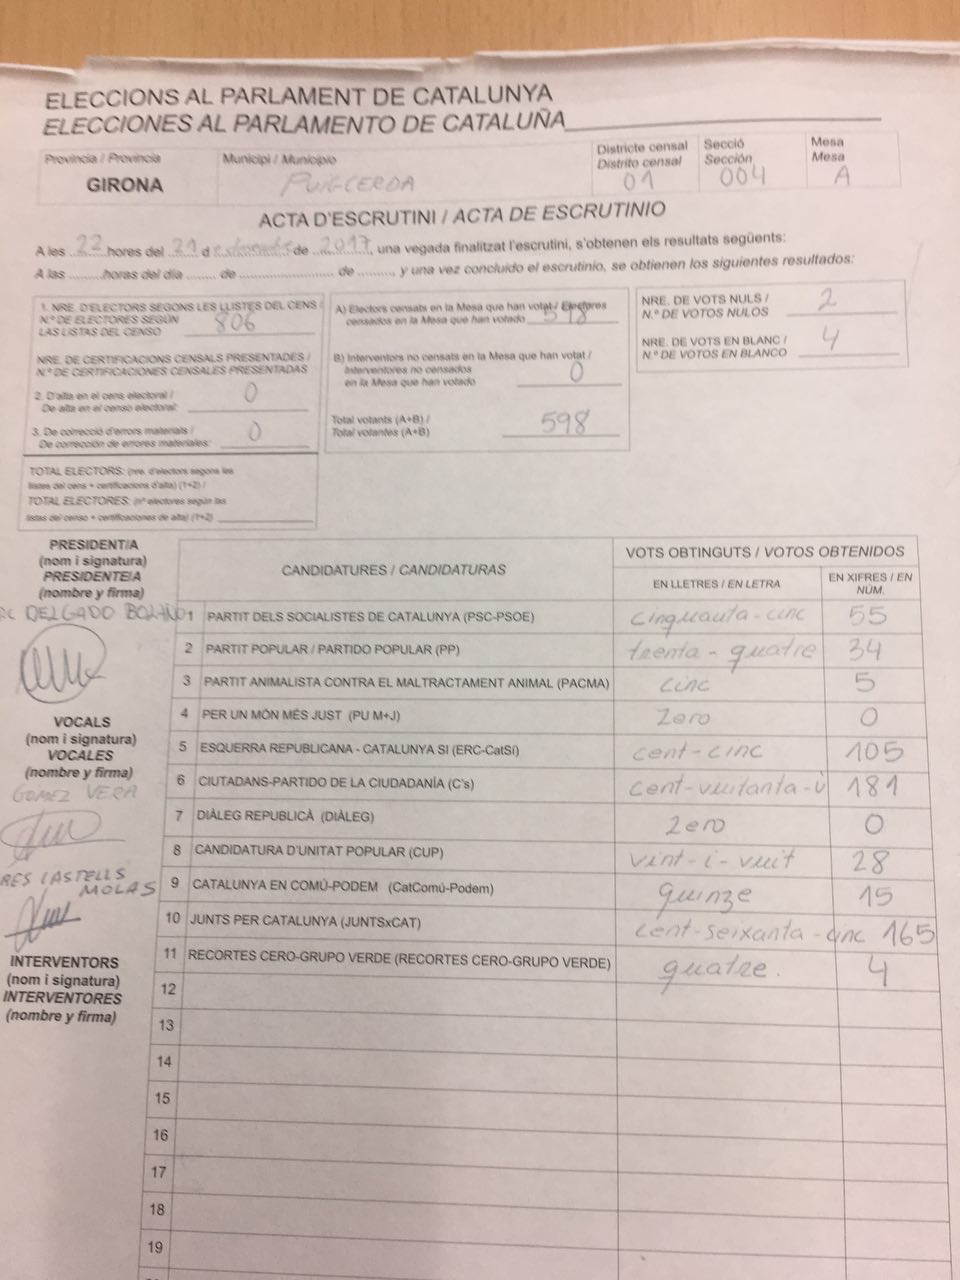 ELECCIONS AL PARLAMENT DE CATALUNYA
ELECCIONES AL PARLAMENTO DE CATALUÑA
Província / Provincia
GIRONA
Municipi / Municipio
PUIGCERDA
Districte censal
Distrito censal
01
Secció
Sección
004
Mesa
Mesa
A
ACTA D'ESCRUTINI / ACTA DE ESCRUTINIO
A les 22 hores del 21 d desembre de 2017, una vegada finalitzat l'escrutini, s'obtenen els resultats següents:
A las ......... horas del día ....... de ........................ de ........, y una vez concluido el escrutinio, se obtienen los siguientes resultados:
1. NRE. D'ELECTORS SEGONS LES LLISTES DEL CENS /
N.º DE ELECTORES SEGÚN
LAS LISTAS DEL CENSO
806
NRE. DE CERTIFICACIONS CENSALS PRESENTADES /
N.º DE CERTIFICACIONES CENSALES PRESENTADAS
2. D'alta en el cens electoral /
De alta en el censo electoral:
0
3. De correcció d'errors materials /
De corrección de errores materiales:
0
TOTAL ELECTORS: (nre. d'electors segons les
llistes del cens + certificacions d'alta) (1+2) /
TOTAL ELECTORES: (nº electores según las
listas del censo + certificaciones de alta) (1+2)
A) Electors censats en la Mesa que han votat / Electores
censados en la Mesa que han votado
598
B) Interventors no censats en la Mesa que han votat /
Interventores no censados
en la Mesa que han votado
0
Total votants (A+B) /
Total votantes (A+B)
598
NRE. DE VOTS NULS /
N.º DE VOTOS NULOS
2
NRE. DE VOTS EN BLANC /
N.º DE VOTOS EN BLANCO
4
PRESIDENT/A
(nom i signatura)
PRESIDENTE/A
(nombre y firma)
DELGADO BOLAÑO
VOCALS
(nom i signatura)
VOCALES
(nombre y firma)
GOMEZ VERA
CASTELLS
MOLAS
INTERVENTORS
(nom i signatura)
INTERVENTORES
(nombre y firma)
CANDIDATURES / CANDIDATURAS
VOTS OBTINGUTS / VOTOS OBTENIDOS
EN LLETRES / EN LETRA
EN XIFRES / EN NÚM.
1 PARTIT DELS SOCIALISTES DE CATALUNYA (PSC-PSOE) cinquanta-cinc 55
2 PARTIT POPULAR / PARTIDO POPULAR (PP) trenta-quatre 34
3 PARTIT ANIMALISTA CONTRA EL MALTRACTAMENT ANIMAL (PACMA) cinc 5
4 PER UN MÓN MÉS JUST (PU M+J) zero 0
5 ESQUERRA REPUBLICANA - CATALUNYA SI (ERC-CatSí) cent-cinc 105
6 CIUTADANS-PARTIDO DE LA CIUDADANÍA (C's) cent-vuitanta-ù 181
7 DIÀLEG REPUBLICÀ (DIÀLEG) zero 0
8 CANDIDATURA D'UNITAT POPULAR (CUP) vint-i-vuit 28
9 CATALUNYA EN COMÚ-PODEM (CatComú-Podem) quinze 15
10 JUNTS PER CATALUNYA (JUNTSxCAT) cent-seixanta-cinc 165
11 RECORTES CERO-GRUPO VERDE (RECORTES CERO-GRUPO VERDE) quatre. 4
12
13
14
15
16
17
18
19